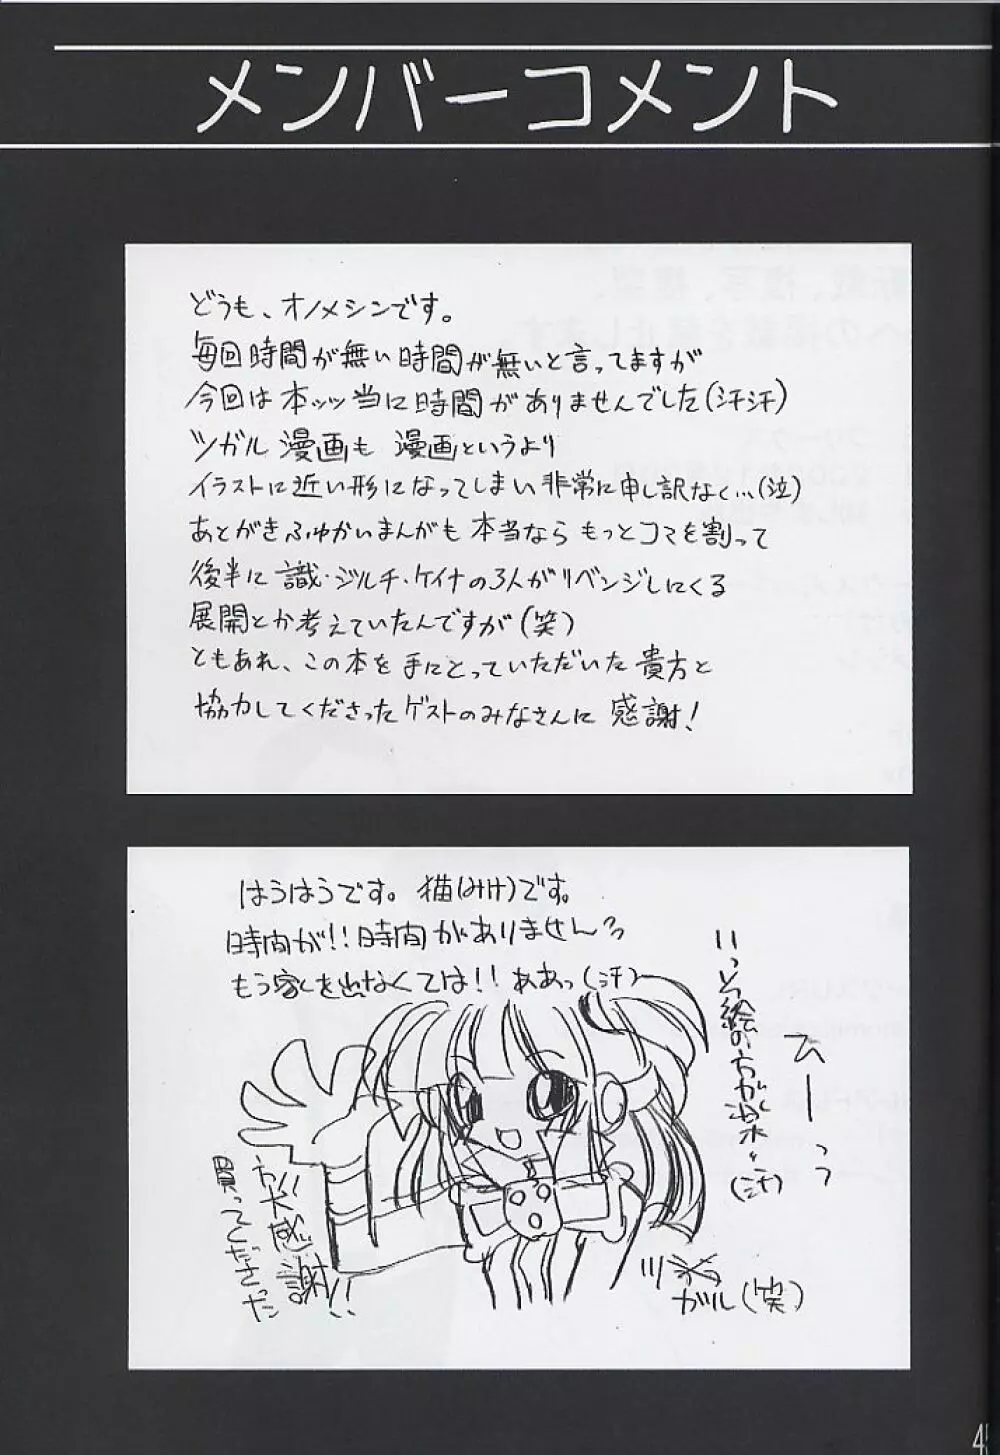 メンバーコメント
どうも、オノメシンです。
毎回時間が無い時間が無いと言ってますが
今回は本ッッ当に時間がありませんでした(汗汗)
ツガル漫画も漫画というより
イラストに近い形になってしまい非常に申し訳なく…(泣)
あとがきふゆかいまんがも本当ならもっとコマを割って
後半に識・ジルチ・ケイナの3人がリベンジしにくる
展開とか考えていたんですが(笑)
ともあれ、この本を手にとっていただいた貴方と
協力してくださったゲストのみなさんに感謝!
はうはうです。猫(みけ)です。
時間が!!時間がありません
もう家を出なくては!!ああっ(汗)
ひーっっ
いっそ絵の方が楽
(汗)
買ってくださった
方に大感謝!!
ガル(笑)
4